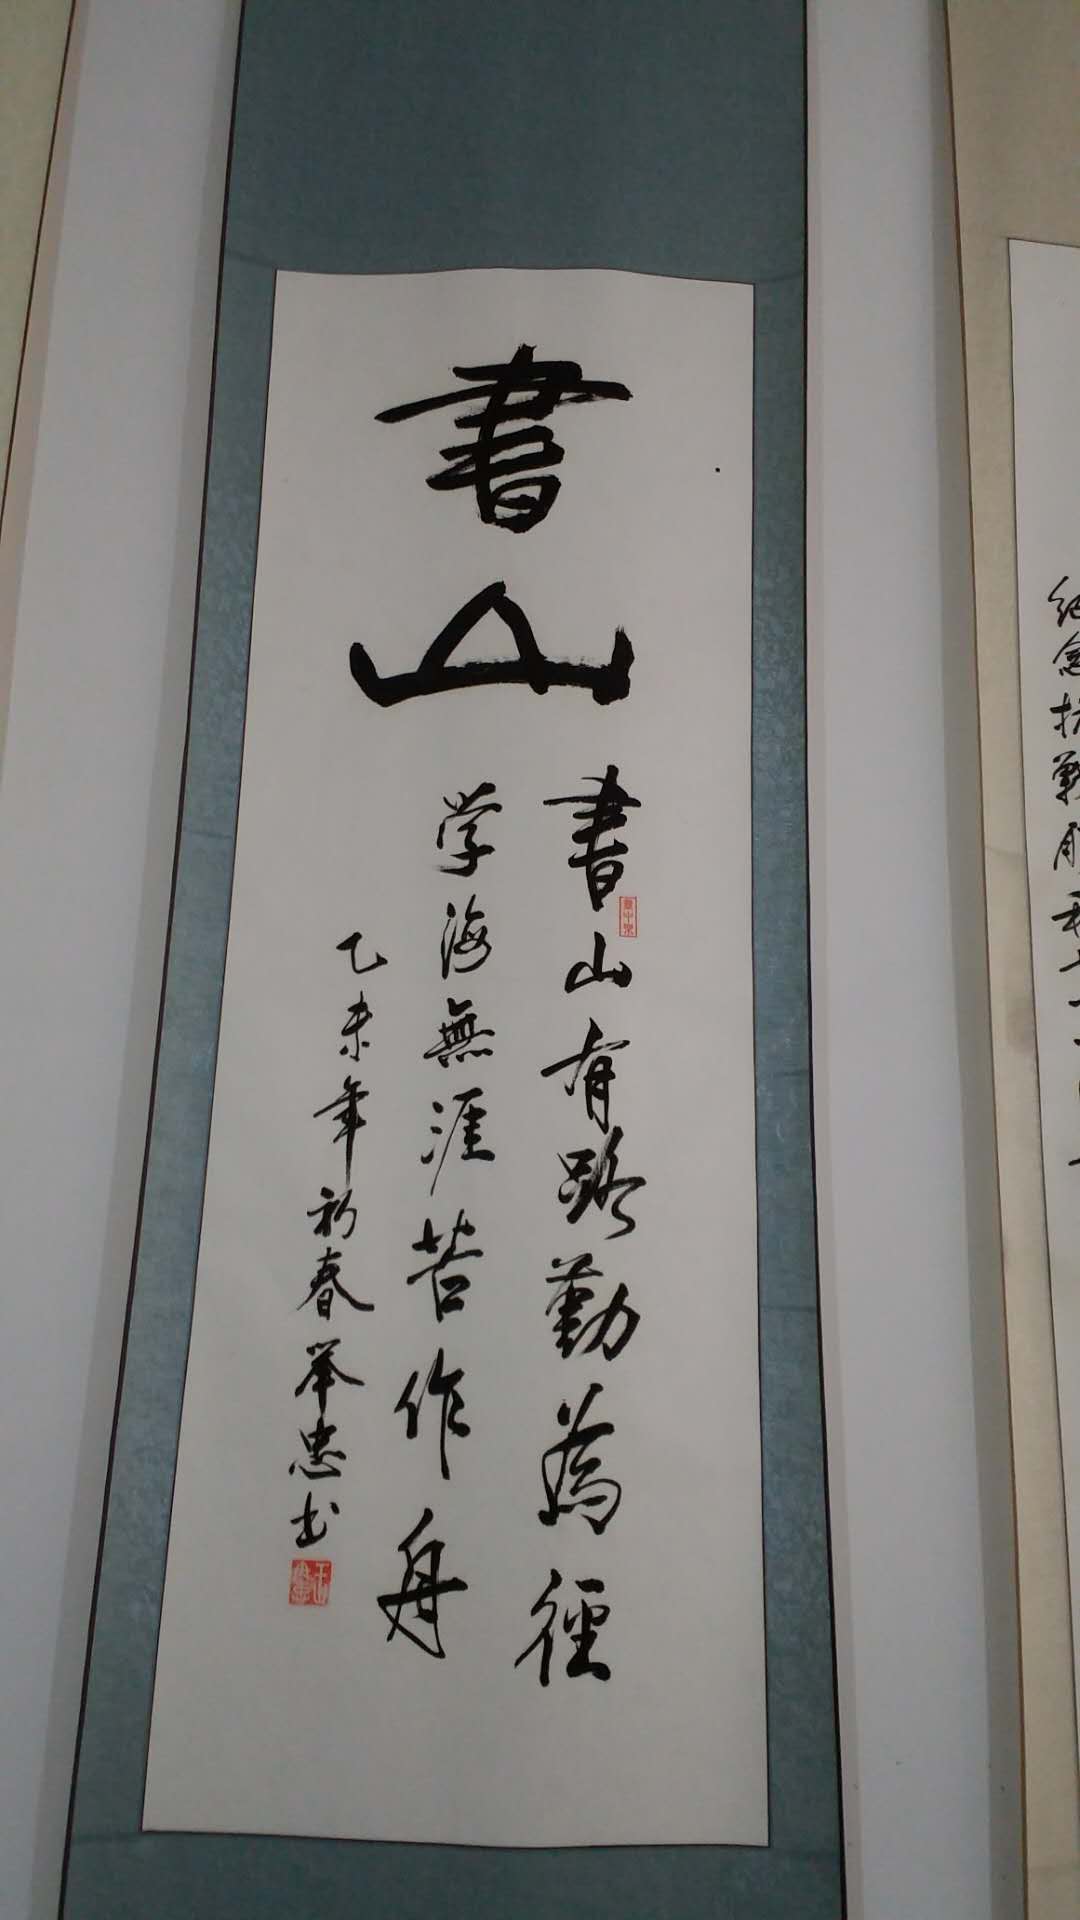 書山
書山有路勤為徑
学海無涯苦作舟
乙未年初春举忠书
纪念抗戰勝利七十